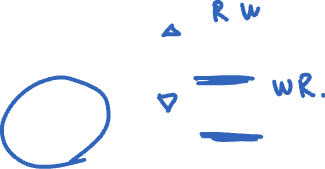 R W
WR.